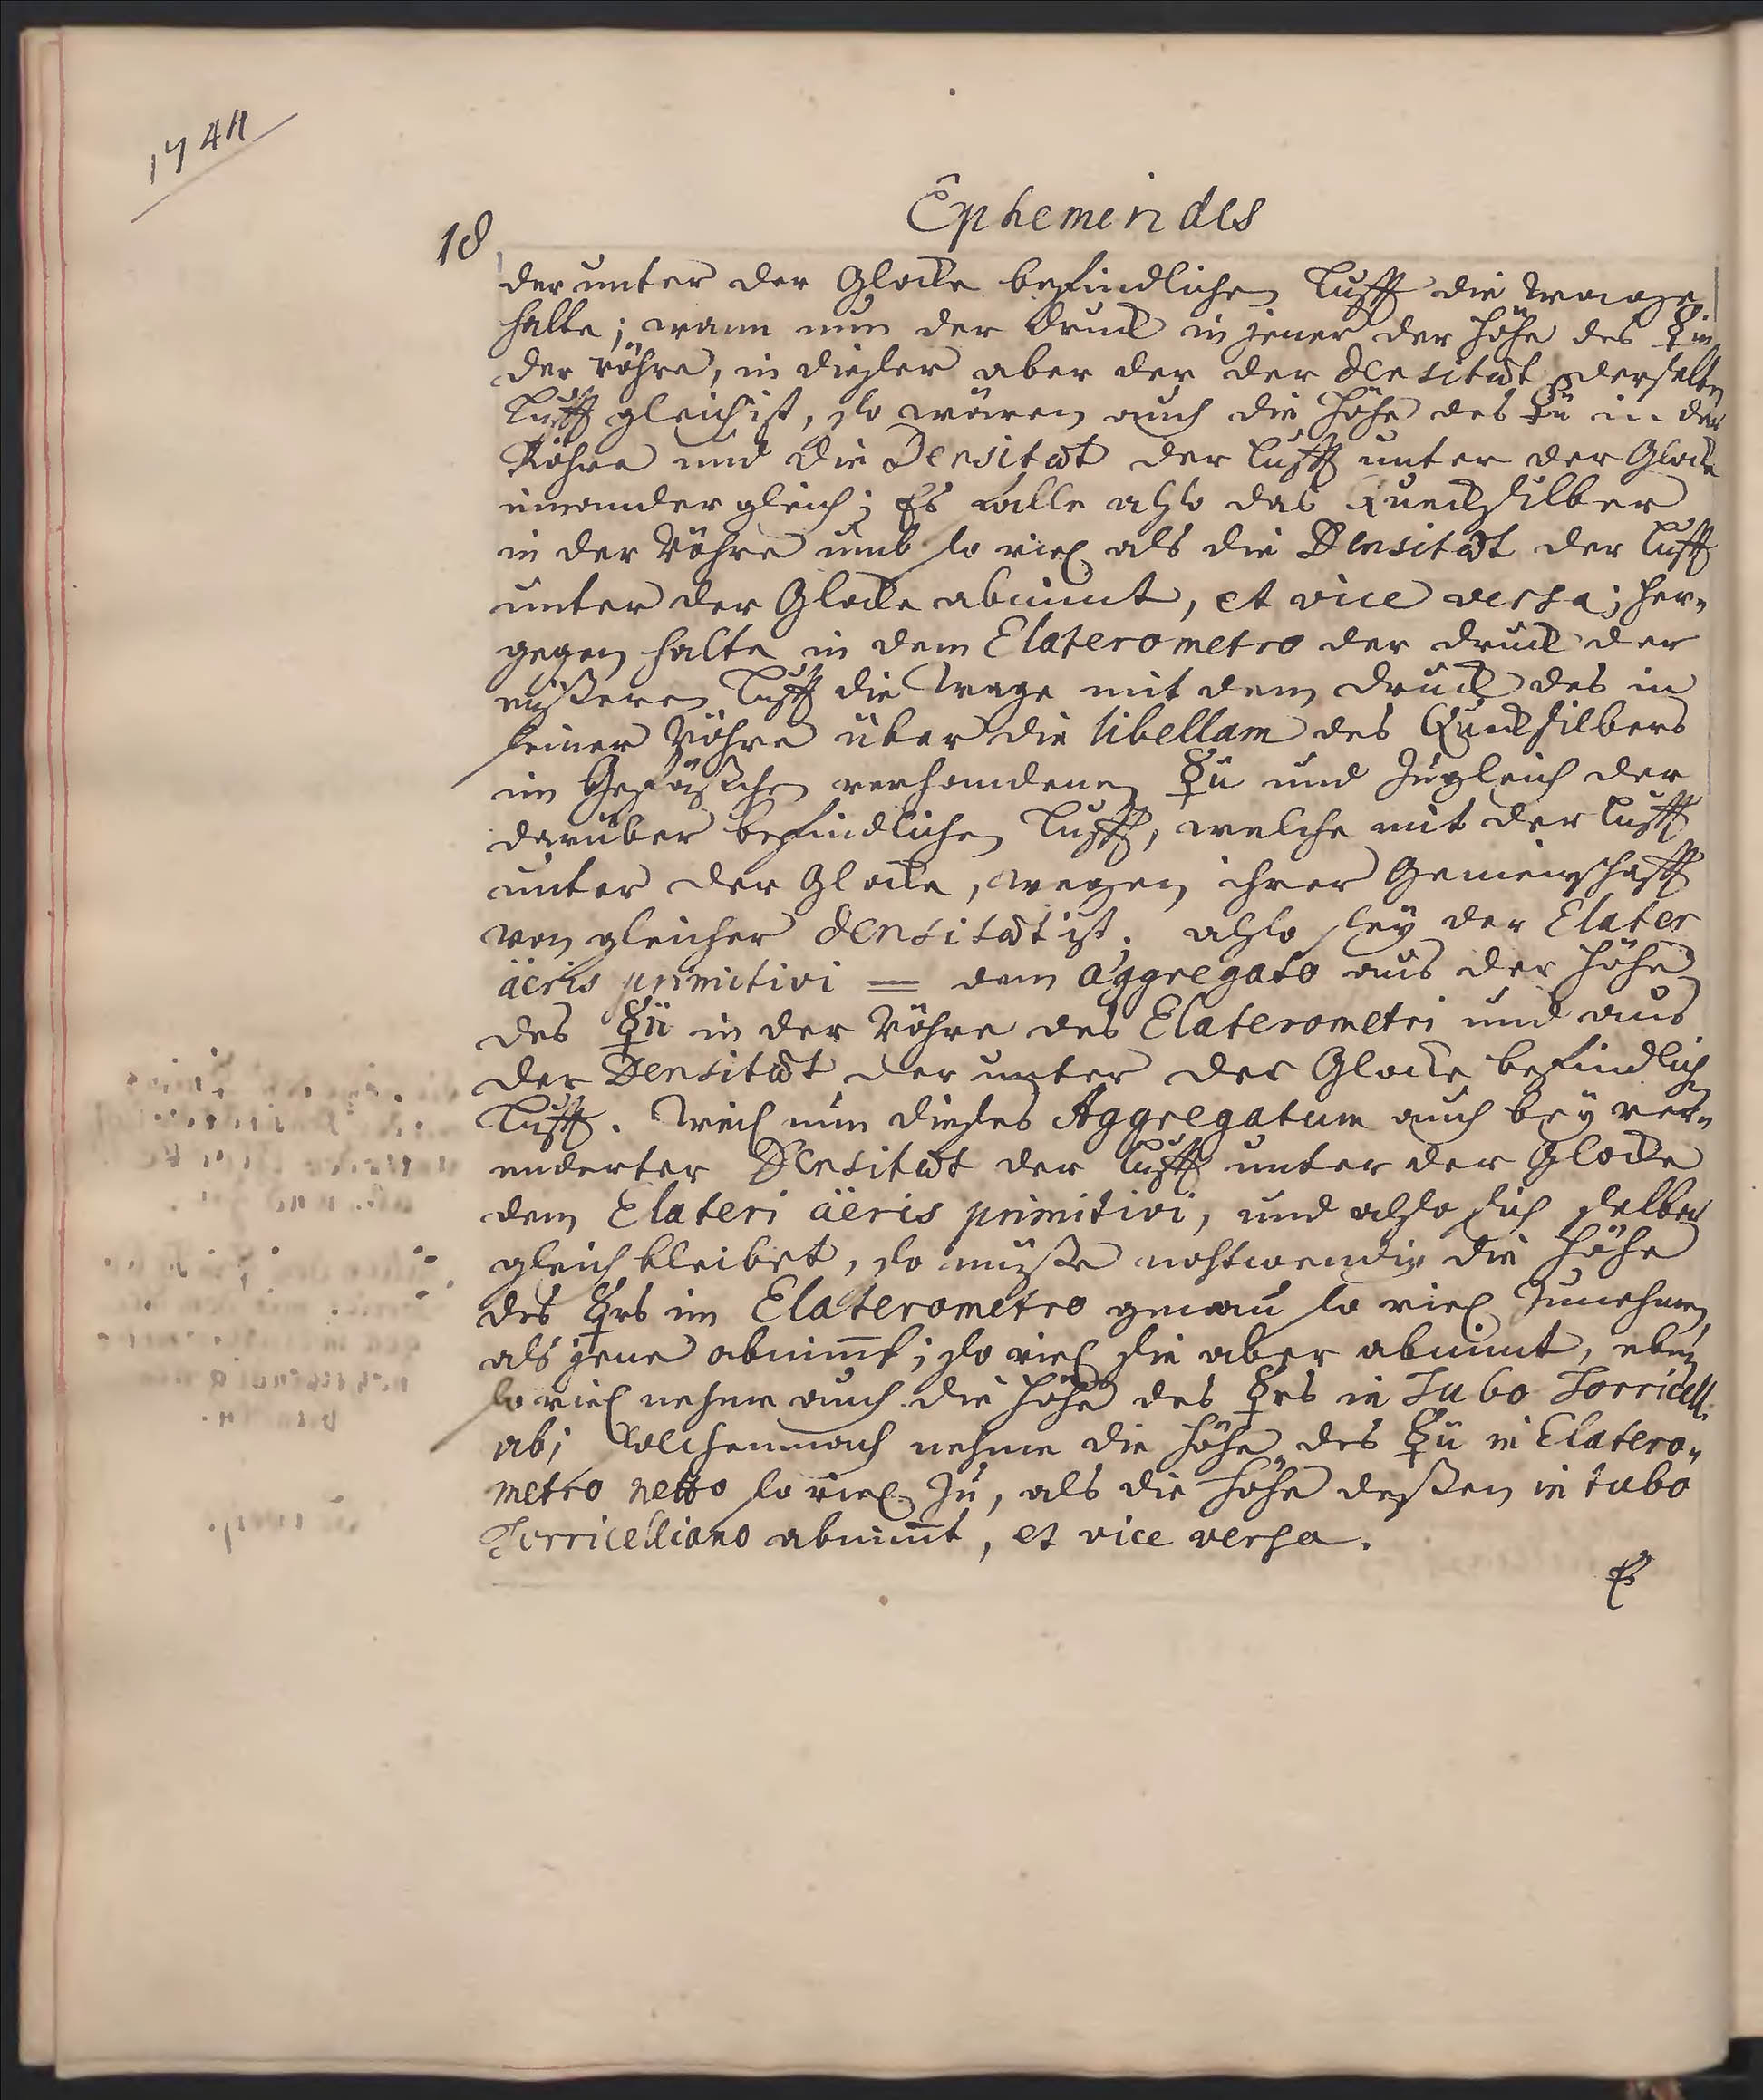 1744
18
Ephemerides
der unter der Glocke befindlichen Lufft die Waage
halte; wann nun der Druck in jener der Höhe des ☿ in
der Röhre, in dießer aber der der Densitæt derselben
Lufft gleich ist, so wären auch die Höhe des ☿ii in der
Röhre und die Densitæt der Lufft unter der Glocke
einander gleich; Es falle also das Quecksilber
in der Röhre umb so viel als die Densitæt der Lufft
unter der Glocke abnimt, et vice versa; her-
gegen halte in dem Elaterometro der Druck der
äußeren Lufft die Wage mit dem Druck des in
seiner Röhre über die libellam des Quecksilbers
im Gefäßchen verhandenen ☿ii und zugleich der
darüber befindlichen Lufft, welche mit der Lufft
unter der Glocke, wegen ihrer Gemeinschafft
von gleicher Densitæt ist. also sey der Elater
äeris primitivi = dem Aggregato aus der Höhe
des ☿ii in der Röhre des Elaterometri und aus
der Densitæt der unter der Glocke befindlichen
Lufft. Weil nun dießes Aggregatum auch bey ver-
enderter Densitæt der Lufft unter der Glocke
dem Elateri äeris primitivi, und also sich selber
gleich bleibet, so müße nohtwendig die Höhe
des ☿rs im Elaterometro genau so viel zunehmen,
als jene abnimt; so viel sie aber abnimt, eben
so viel nehme auch die Höhe des ☿rs in Tubo Torricell.
ab; solchemnach nehme die Höhe des ☿ii in Elatero-
metro netto so viel zu, als die Höhe deßen in tubo
Torricelliano abnimt, et vice versa.
Es